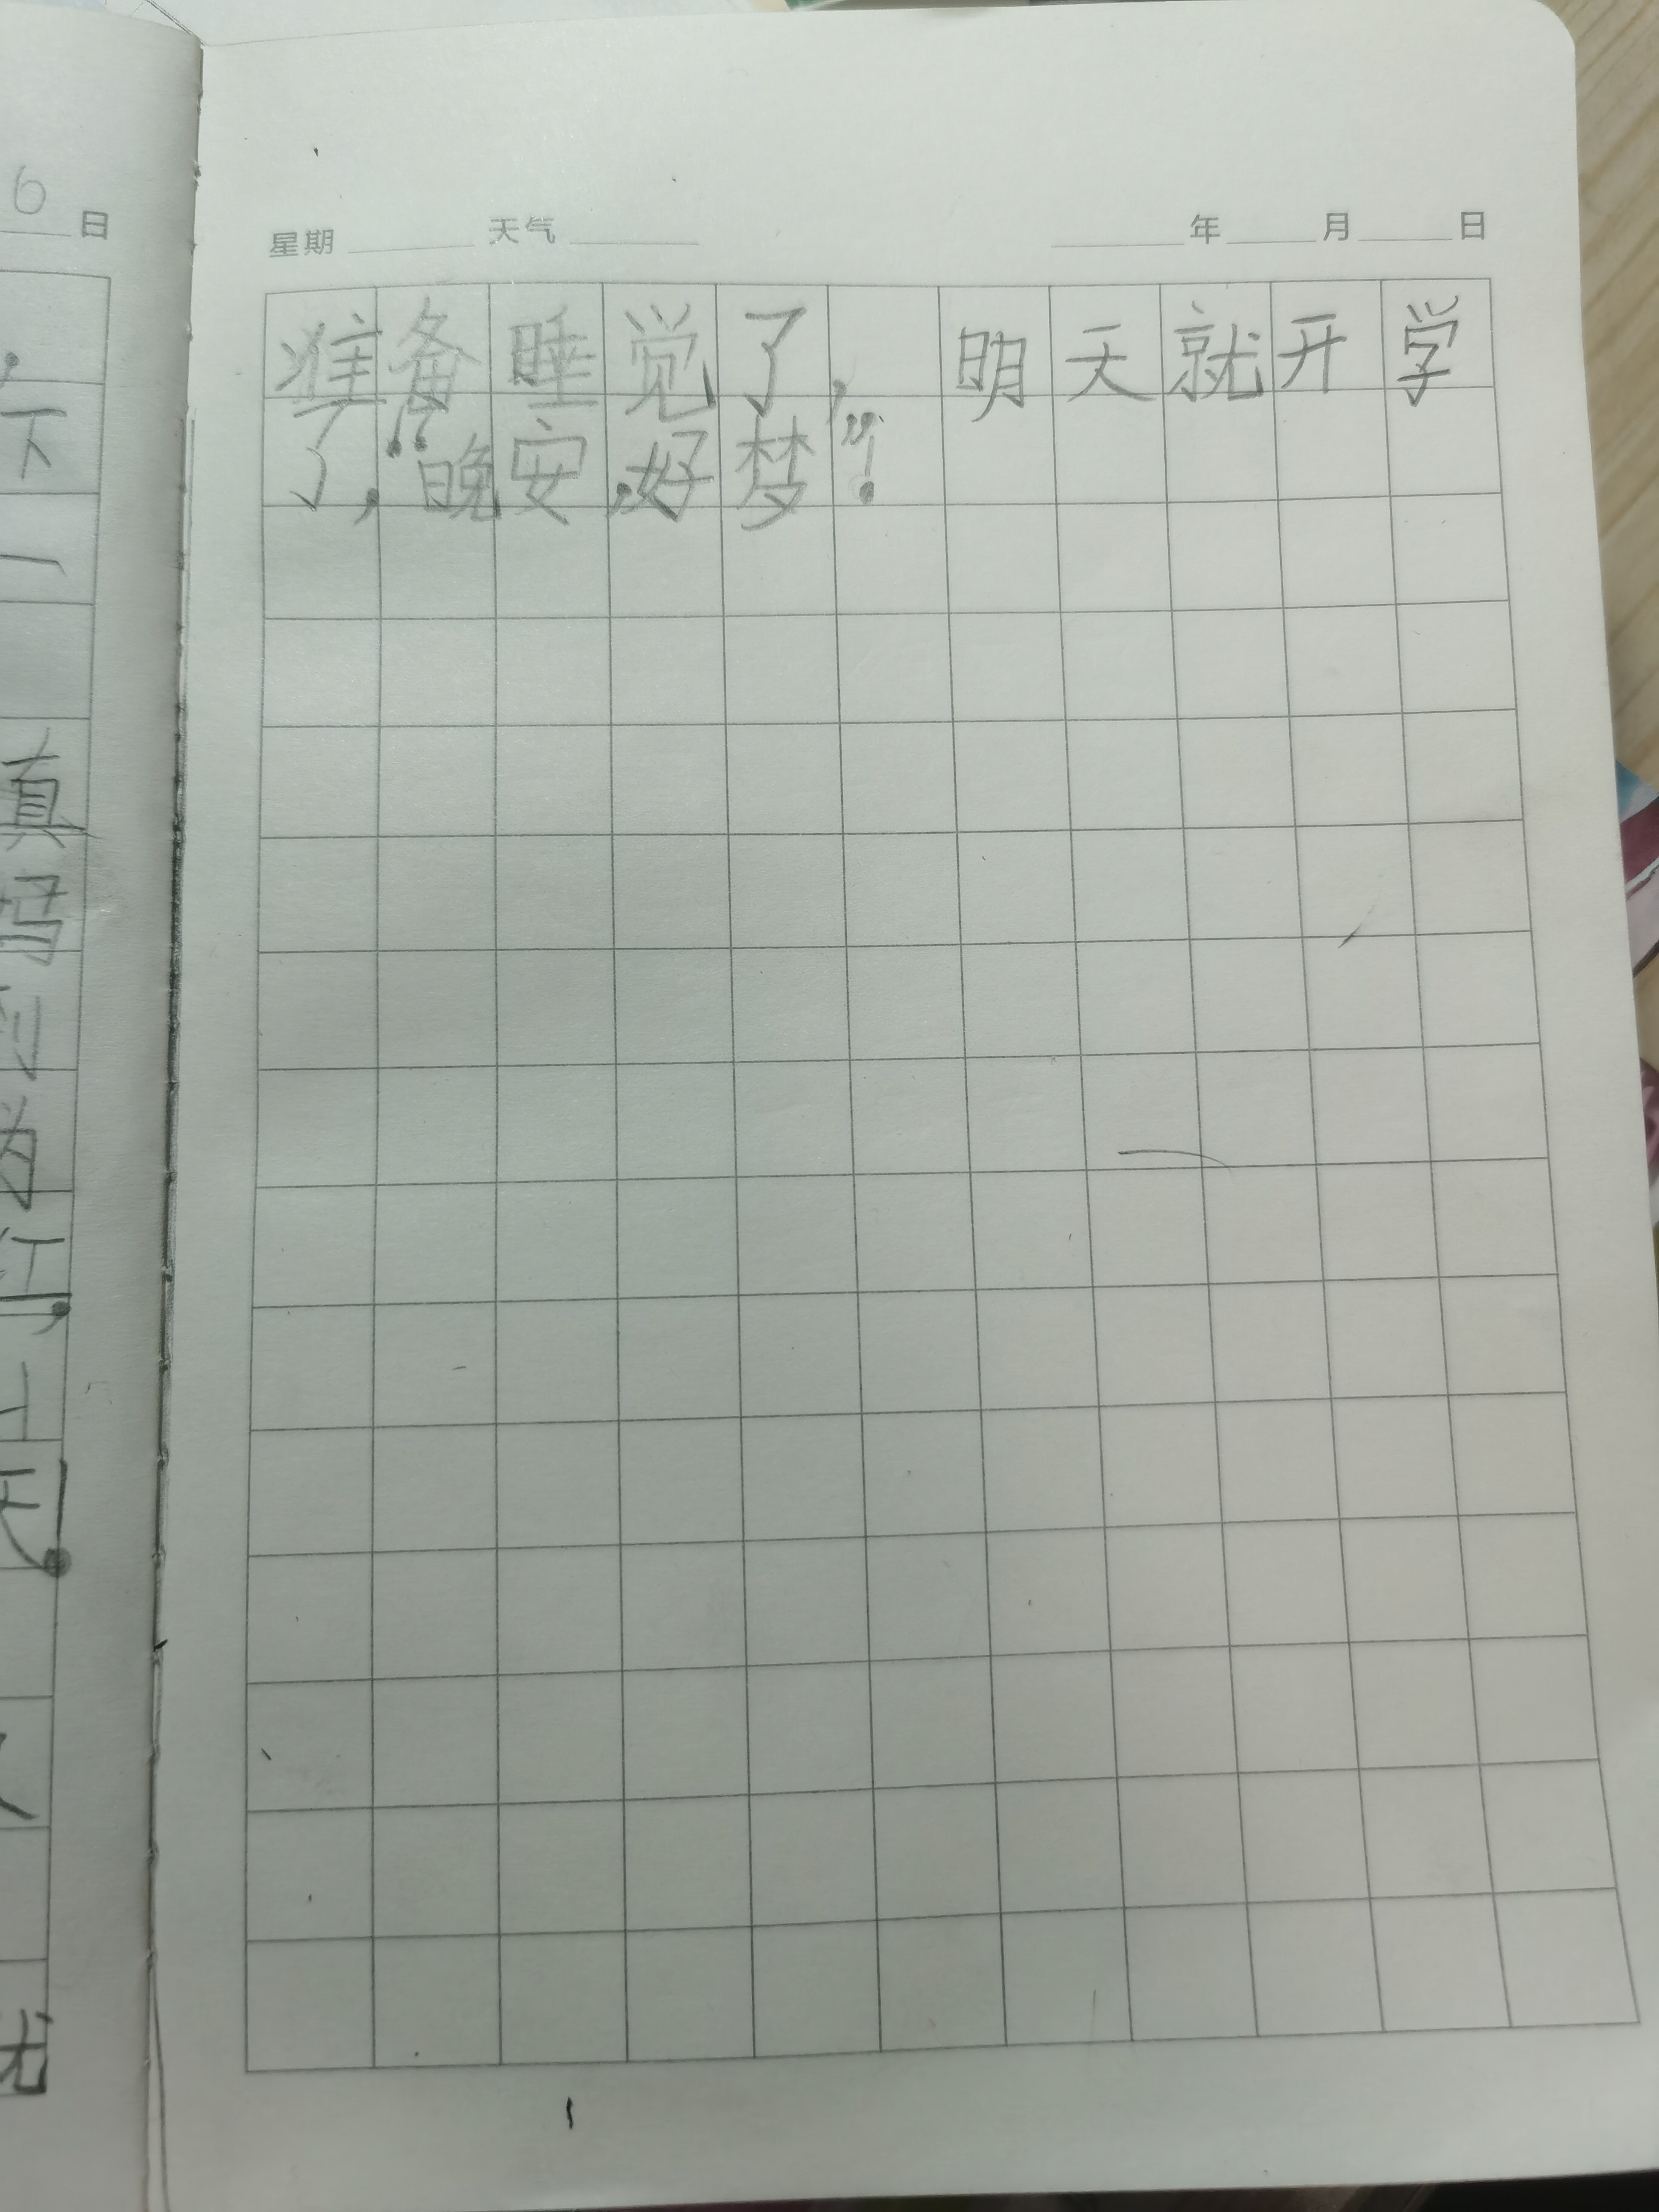 6日
星期 天气 年 月 日
准备睡觉了，明天就开学
了，“晚安，好梦”！
，
下
一
真
为
红，
上
天。